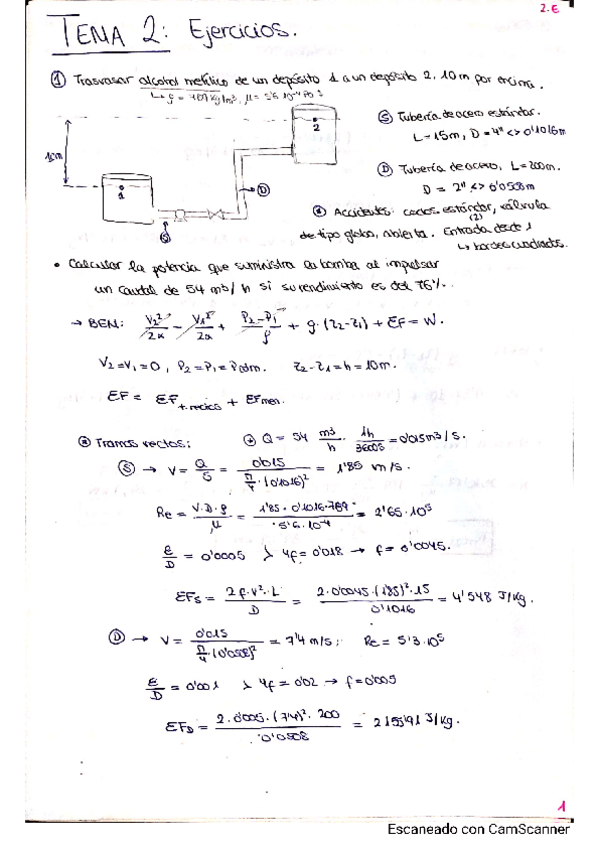 2.E
TEMA 2: Ejercicios.
① Trasvasar alcohol metílico de un depósito 1 a un depósito 2, 10m por encima.
↳ ρ = 789 kg/m³, μ = 5'6·10⁻⁴ Pa·s
Ⓢ Tubería de acero estándar.
L = 15m, D = 4" <> 0'1016m
Ⓓ Tubería de acero, L = 200m.
D = 2" <> 0'0508m
Accidentes: codos estándar, válvula
(2)
de tipo globo, abierta. Entrada desde 1
↳ bordes cuadrados.
2
1
Ⓓ
Ⓢ
• Calcular la potencia que suministra la bomba al impulsar
un caudal de 54 m³/h si su rendimiento es del 76%.
→ BEM: V₂²/2α - V₁²/2α + P₂-P₁/ρ + g·(z₂-z₁) + EF = W.
V₂=V₁=0, P₂=P₁=Patm. z₂-z₁=h=10m.
EF = EF t. rectos + EF men.
Tramos rectos: Q = 54 m³/h · 1h/3600s = 0'015m³/s.
Ⓢ → V = Q/S = 0'015/π/4·(0'1016)² = 1'85 m/s.
Re = V·D·ρ/μ = 1'85·0'1016·789/5'6·10⁻⁴ = 2'65·10⁵
ε/D = 0'0005 λ 4f = 0'018 → f = 0'0045.
EFs = 2f·V²·L/D = 2·0'0045·(1'85)²·15/0'1016 = 4'548 J/kg.
Ⓓ → V = 0'015/π/4·(0'0508)² = 7'4 m/s; Re = 5'3·10⁵
ε/D = 0'001 λ 4f = 0'02 → f = 0'005
EF_D = 2·0'005·(7'4)²·200/0'0508 = 2155'91 J/kg.
1
Escaneado con CamScanner